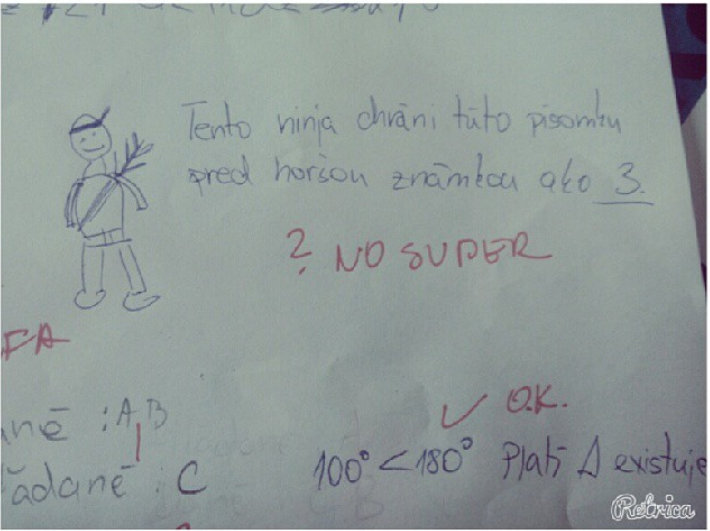 Tento ninja chráni túto písomku
pred horšou známkou ako 3.
? NO SUPER
FA
ané : A B
ľadané : C
✓ O.K.
100° < 180° Platí Δ existuje
Retrica